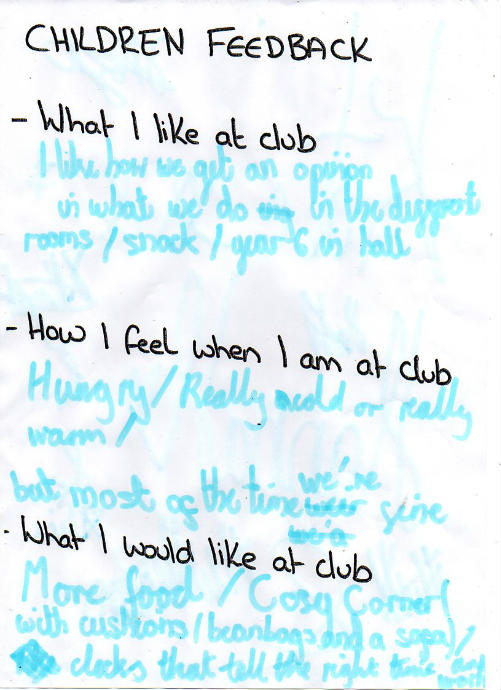 CHILDREN FEEDBACK
- What I like at club
I like how we get an opinion
in what we do in the diffrent
rooms / snack / year 6 in hall
- How I feel when I am at club
Hungry / Really cold or really
warm /
but most of the time we're fine
- What I would like at club
More food / Cosy Corner (
with cushions / beanbags and a sofa) /
clocks that tell the right time and